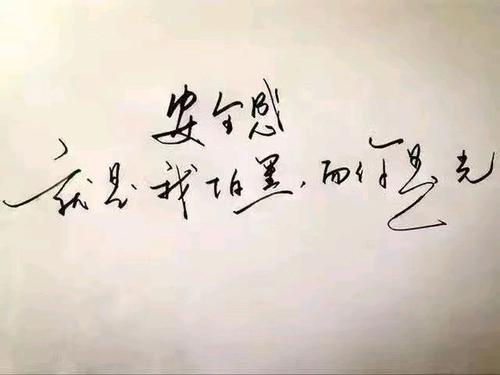 安全感
就是我怕黑，而你是光